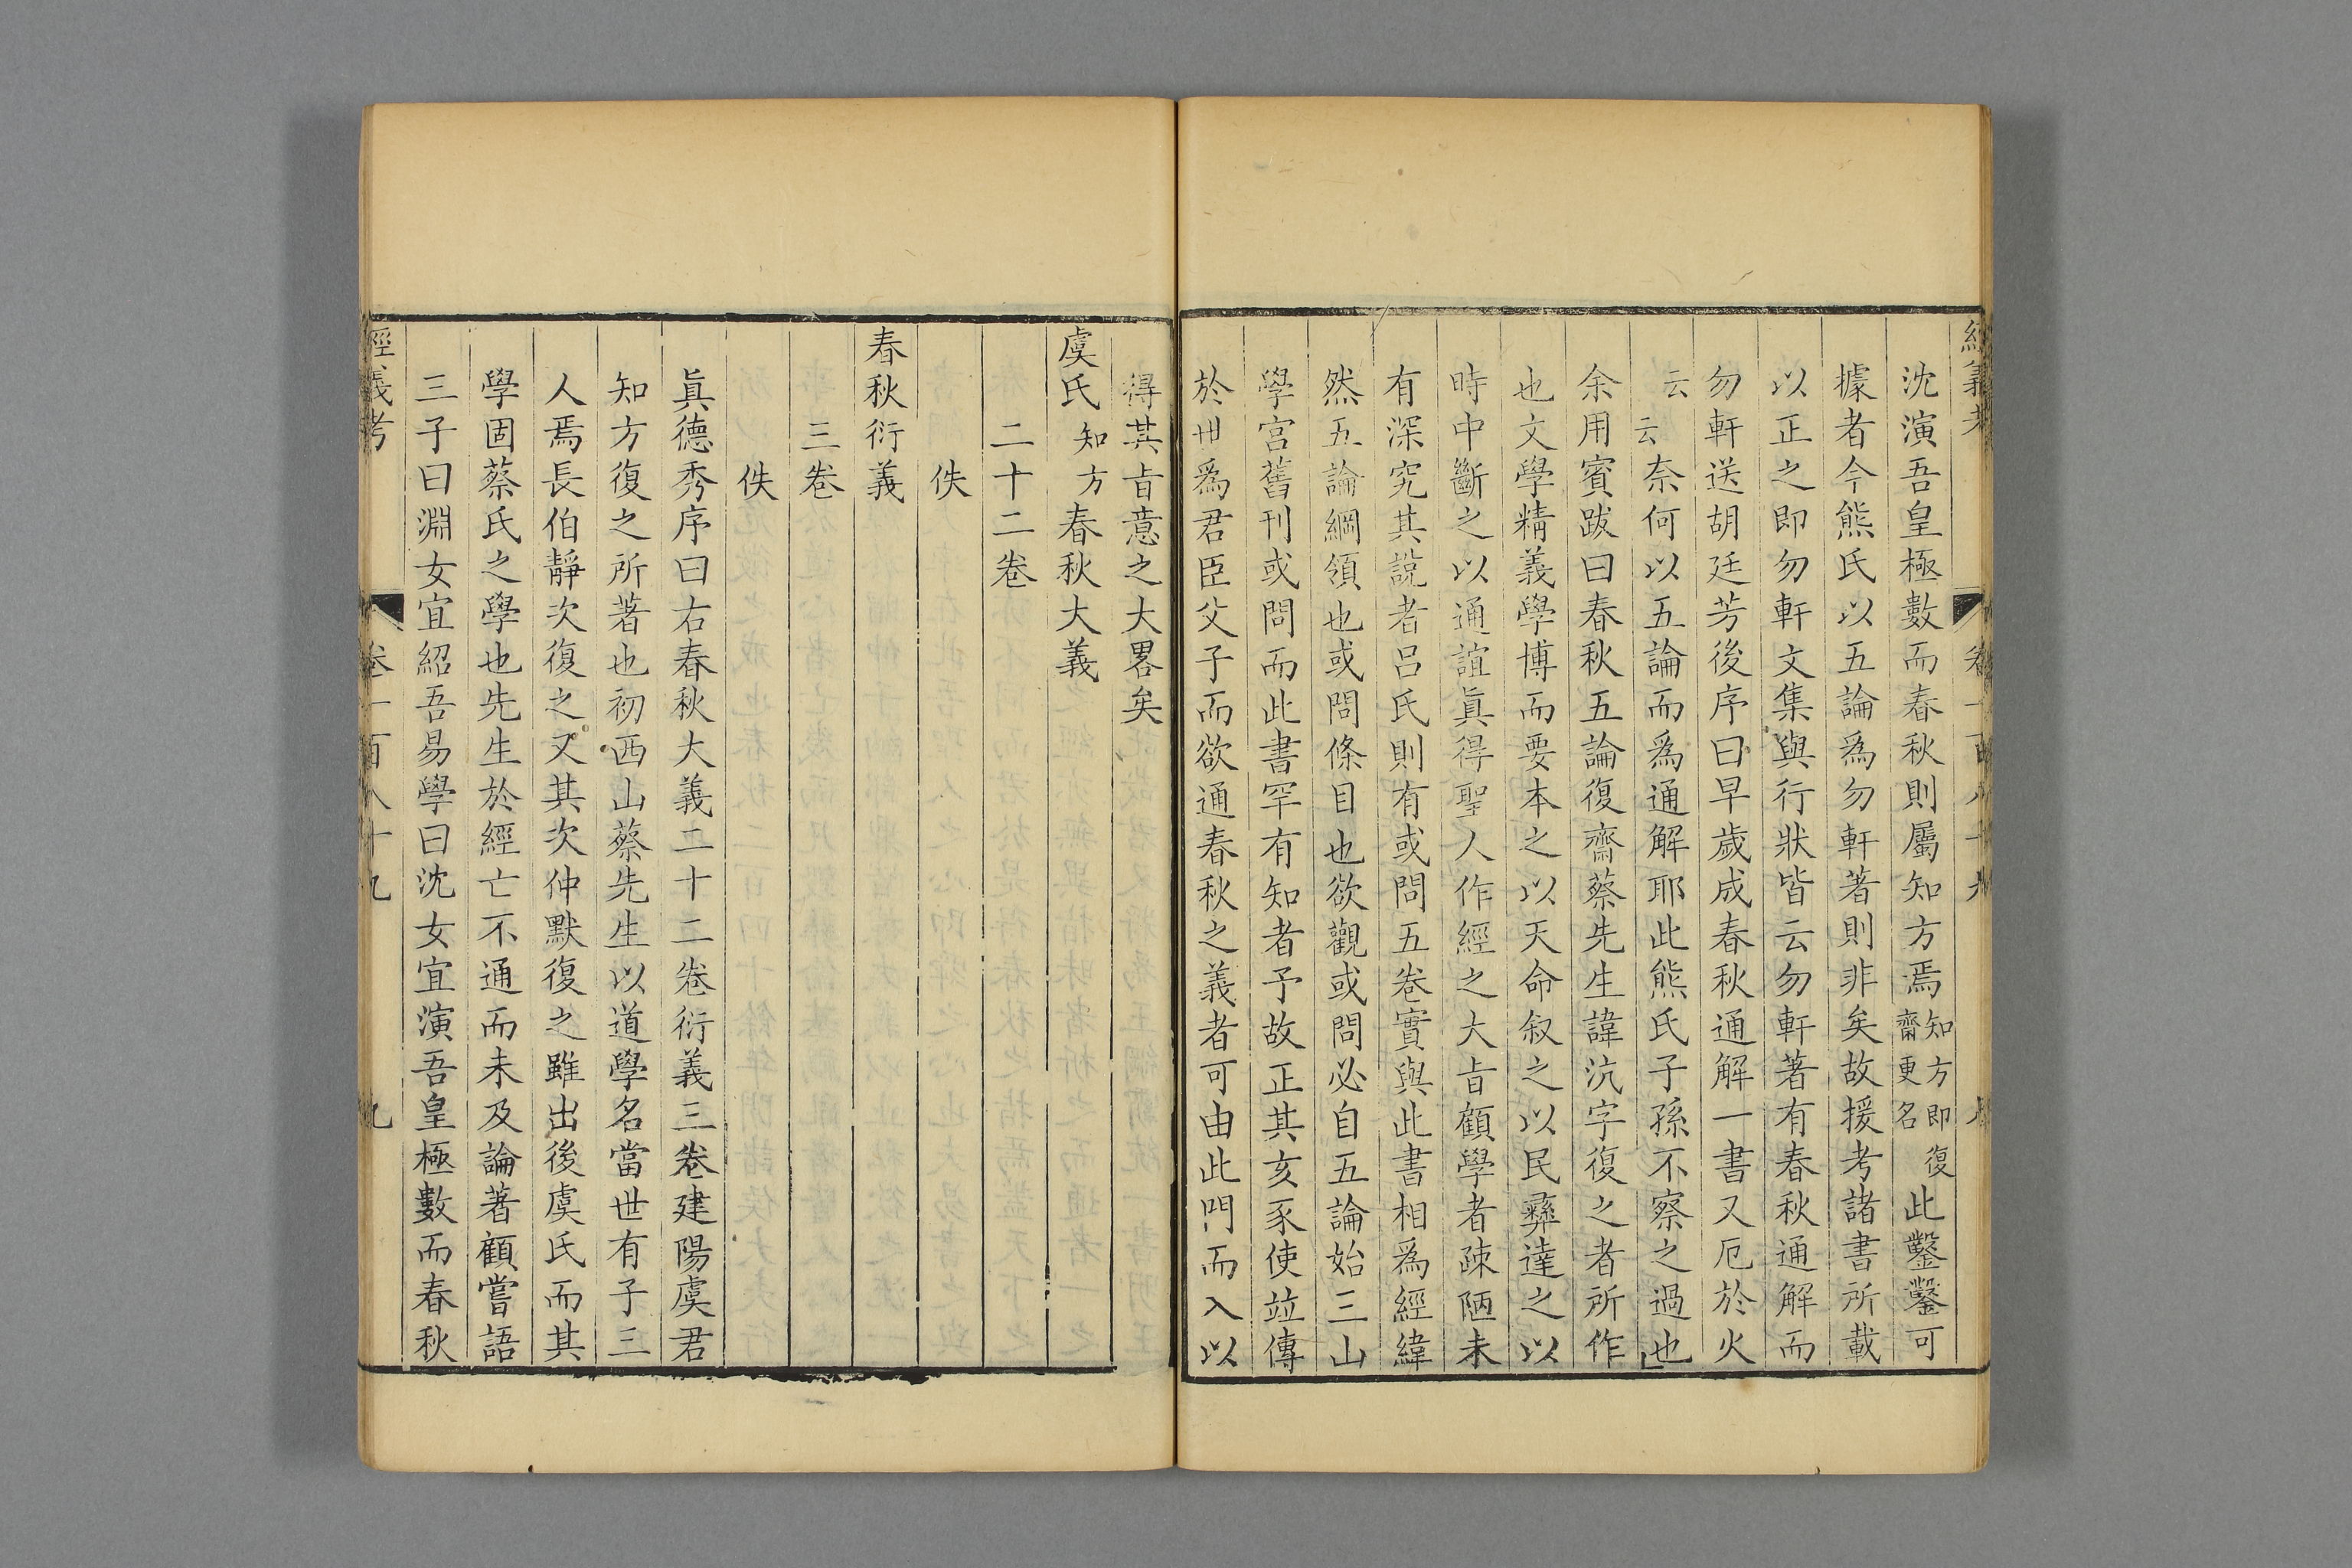 經義考 卷一百八十九 九
沈演吾皇極數而春秋則屬知方焉知方即復齋更名此鑿鑿可
據者今熊氏以五論爲勿軒著則非矣故援考諸書所載
以正之即勿軒文集與行狀皆云勿軒著有春秋通解而
勿軒送胡廷芳後序曰早歲成春秋通解一書又厄於火
云云奈何以五論而爲通解耶此熊氏子孫不察之過也
余用賓跋曰春秋五論復齋蔡先生諱沆字復之者所作
也文學精義學博而要本之以天命叙之以民彝達之以
時中斷之以通誼眞得聖人作經之大旨顧學者疎陋未
有深究其說者呂氏則有或問五卷實與此書相爲經緯
然五論綱領也或問條目也欲觀或問必自五論始三山
學宮舊刊或問而此書罕有知者予故正其亥豕使竝傳
於世爲君臣父子而欲通春秋之義者可由此門而入以
得其旨意之大畧矣
虞氏知方春秋大義
二十二卷
佚
春秋衍義
三卷
佚
眞德秀序曰右春秋大義二十二卷衍義三卷建陽虞君
知方復之所著也初西山蔡先生以道學名當世有子三
人焉長伯靜次復之又其次仲默復之雖出後虞氏而其
學固蔡氏之學也先生於經亡不通而未及論著顧嘗語
三子曰淵女宜紹吾易學曰沈女宜演吾皇極數而春秋
經義考 卷一百八十九 九